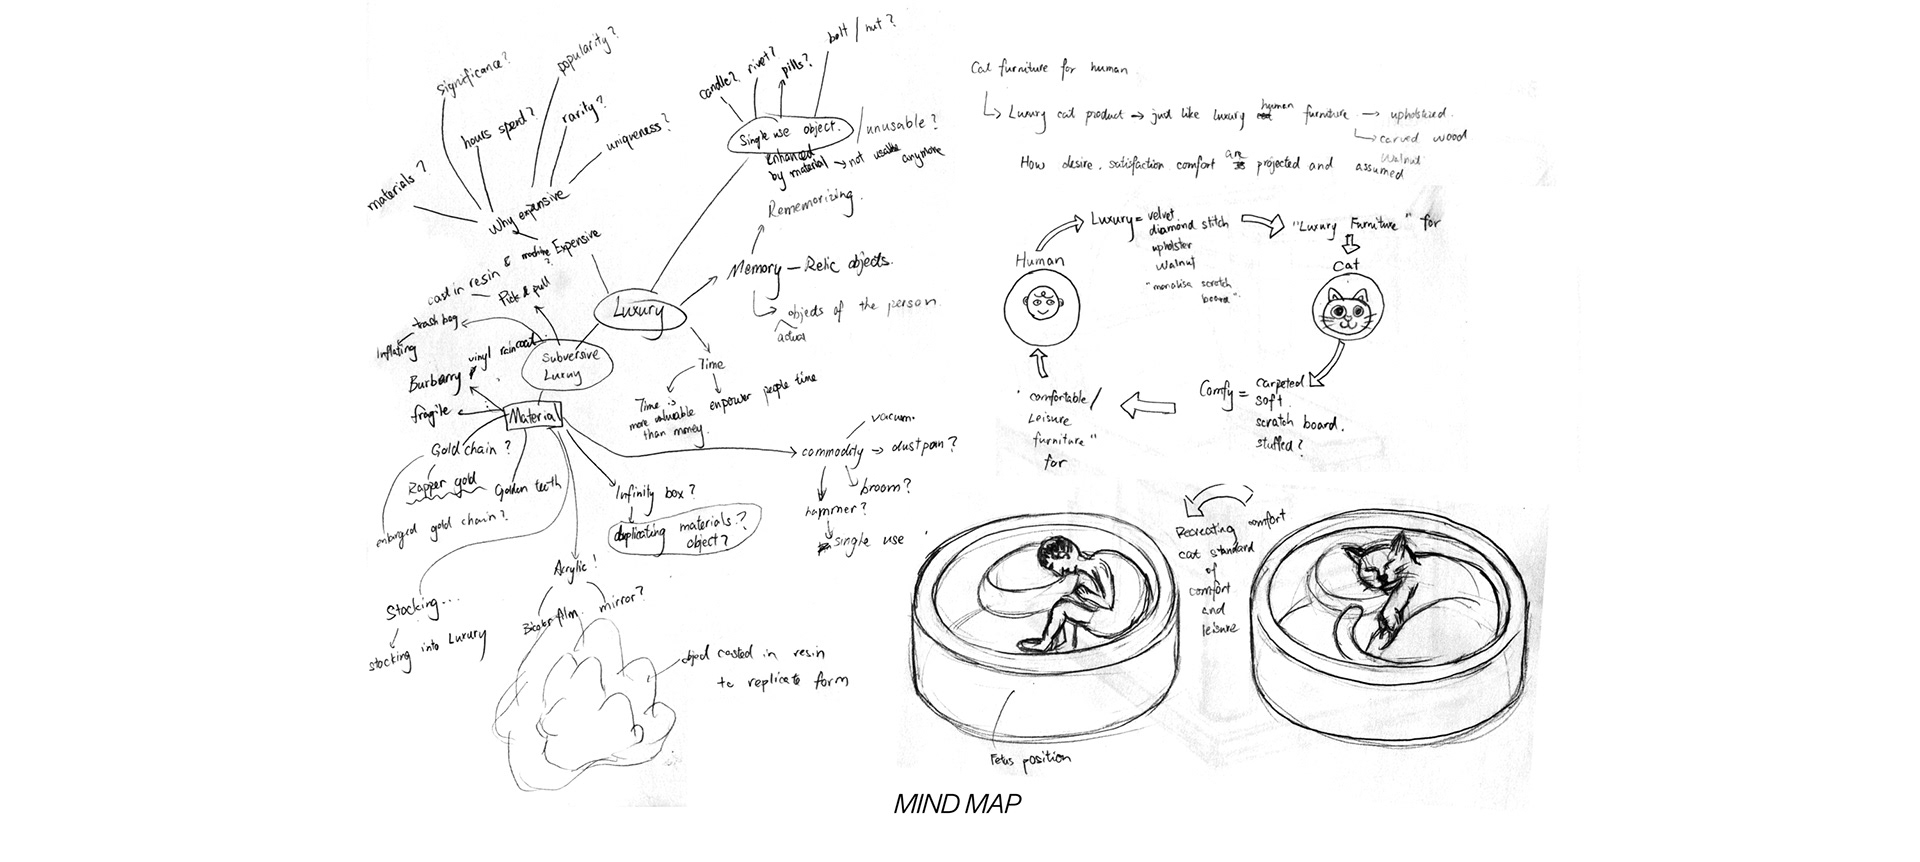 significance?
popularity?
hours spend?
rarity?
uniqueness?
materials?
Why expensive
Expensive
machine?
cast in resin &
Pick & pull
trash bag
Inflating
vinyl raincoat
Burbarry
fragile
Subversive
Luxury
Material
Luxury
candle?
rivet?
pills?
bolt / nut?
Single use object.
/ unusable?
enhanced
by material → not usable anymore
Rememorizing.
Memory — Relic objects.
objects of the person
actual
Time
Time is
more valuable
than money.
enpower people time
Gold chain?
Rapper gold
Golden teeth
enlarged gold chain?
Infinity box?
duplicating materials?
object?
commodity → dustpan?
vacum.
broom?
hammer?
single use
Stocking...
stocking into Luxury
Acrylic!
Bicolor film.
mirror?
object casted in resin
to replicate form
Cat furniture for human
Luxury cat product → just like luxury human furniture → upholstered.
carved wood
Walnut
How desire. satisfaction comfort are projected and assumed
Human
Luxury = velvet
diamond stitch
upholster
Walnut
"monalisa scratch
board".
"Luxury Furniture" for
Cat
Comfy = carpeted
soft.
scratch board.
stuffed?
"comfortable/
Leisure
furniture"
for
Recreating comfort
cat standard
of
comfort
and
leisure
Fetus position
MIND MAP